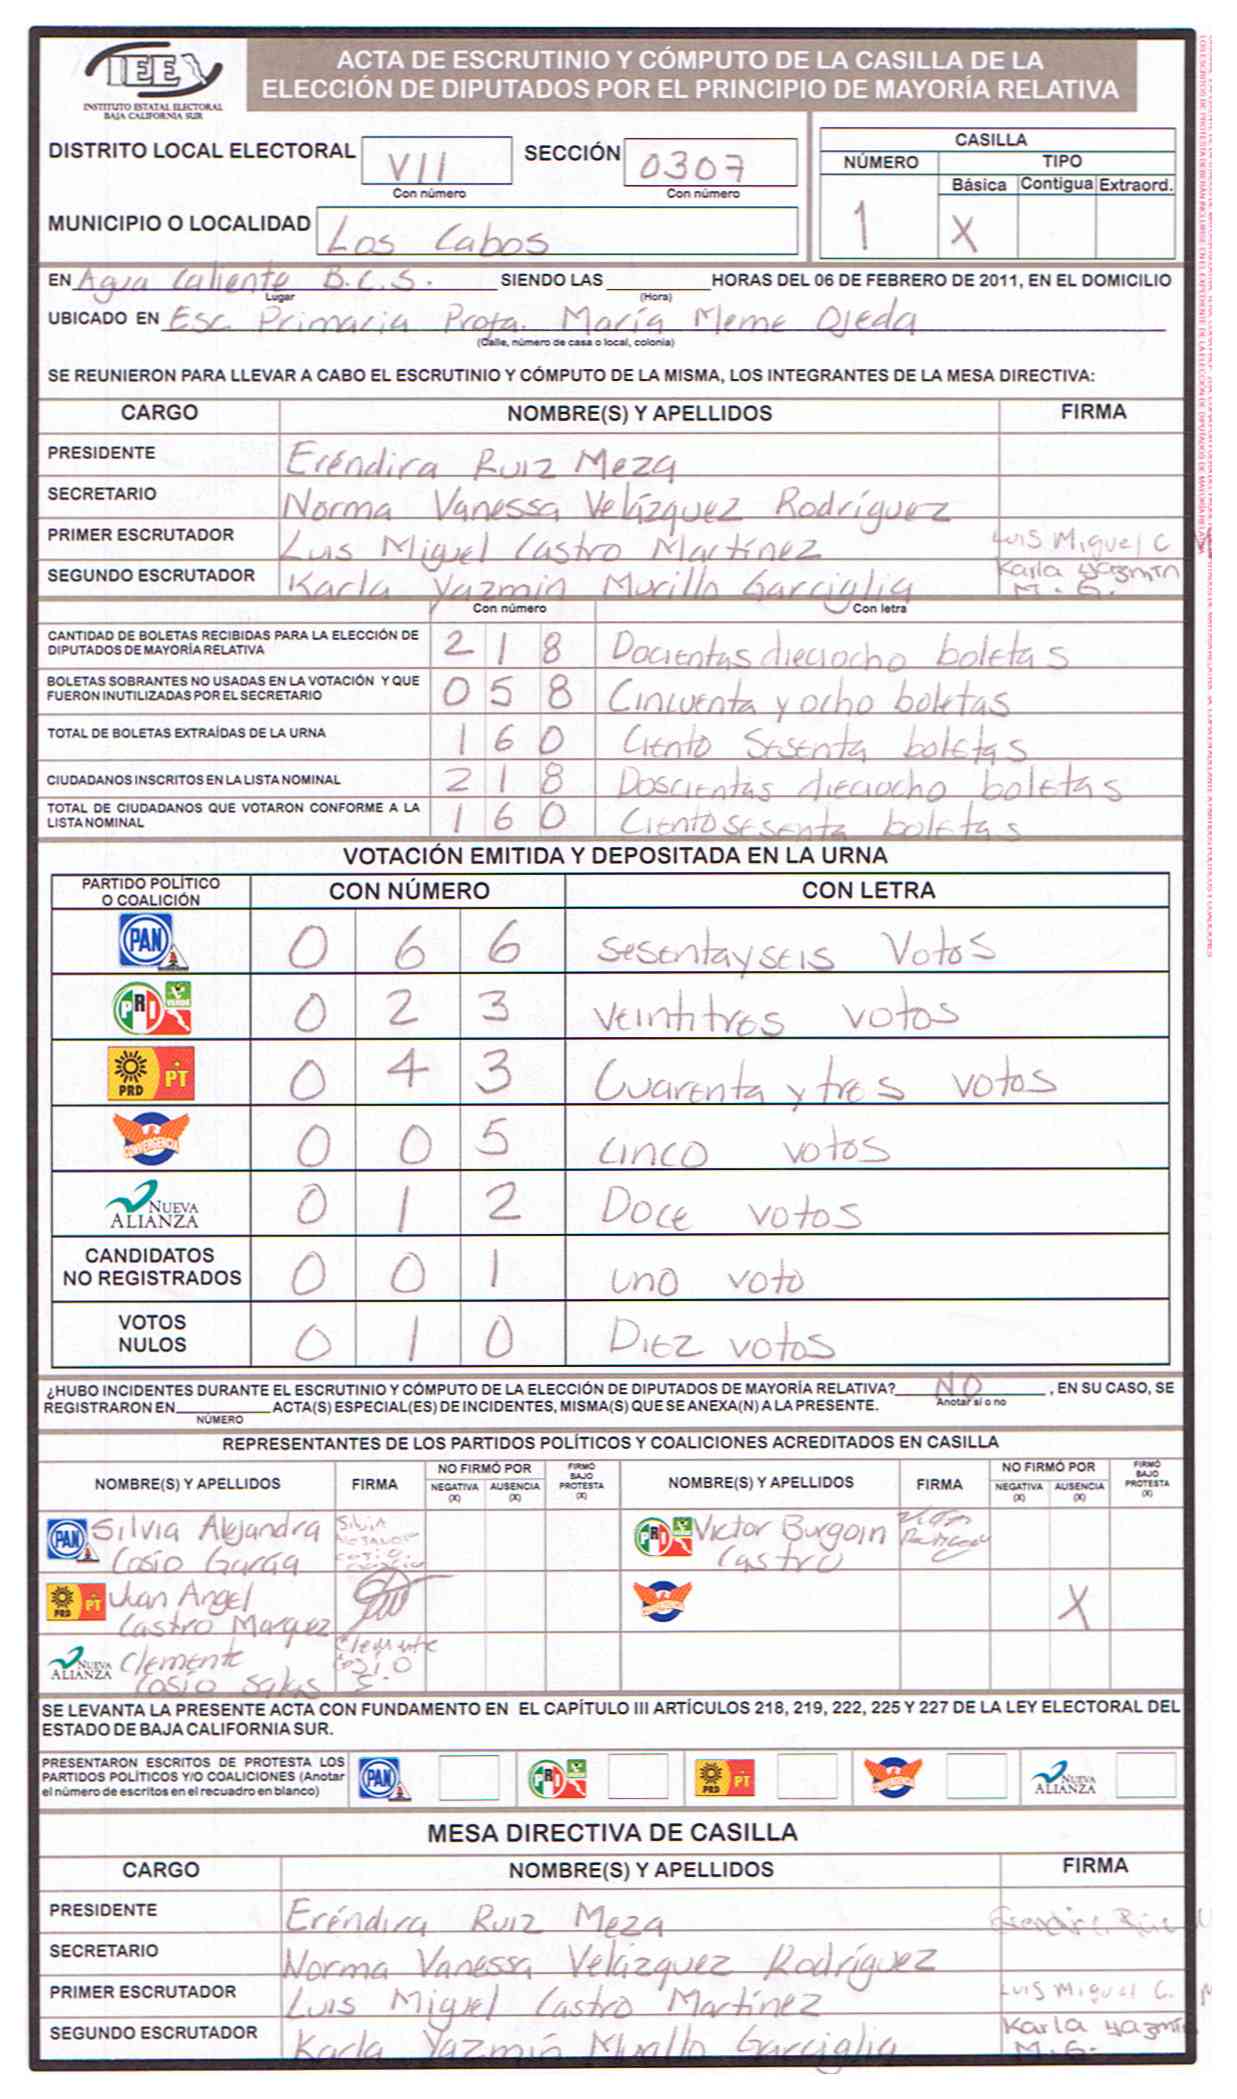 IEE
INSTITUTO ESTATAL ELECTORAL
BAJA CALIFORNIA SUR
ACTA DE ESCRUTINIO Y CÓMPUTO DE LA CASILLA DE LA
ELECCIÓN DE DIPUTADOS POR EL PRINCIPIO DE MAYORÍA RELATIVA
DISTRITO LOCAL ELECTORAL VII SECCIÓN 0307
Con número Con número
MUNICIPIO O LOCALIDAD Los Cabos
CASILLA
NÚMERO TIPO
Básica Contigua Extraord.
1 X
EN Agua Caliente B.C.S. SIENDO LAS HORAS DEL 06 DE FEBRERO DE 2011, EN EL DOMICILIO
Lugar (Hora)
UBICADO EN Esc Primaria Profa. María Meme Ojeda
(Calle, número de casa o local, colonia)
SE REUNIERON PARA LLEVAR A CABO EL ESCRUTINIO Y CÓMPUTO DE LA MISMA, LOS INTEGRANTES DE LA MESA DIRECTIVA:
CARGO NOMBRE(S) Y APELLIDOS FIRMA
PRESIDENTE Eréndira Ruiz Meza
SECRETARIO Norma Vanessa Velázquez Rodríguez
PRIMER ESCRUTADOR Luis Miguel Castro Martínez Luis Miguel C
SEGUNDO ESCRUTADOR Karla Yazmin Murillo Garciglia Karla Yazmin
M. G.
Con número Con letra
CANTIDAD DE BOLETAS RECIBIDAS PARA LA ELECCIÓN DE
DIPUTADOS DE MAYORÍA RELATIVA 2 1 8 Docientas dieciocho boletas
BOLETAS SOBRANTES NO USADAS EN LA VOTACIÓN Y QUE
FUERON INUTILIZADAS POR EL SECRETARIO 0 5 8 Cincuenta y ocho boletas
TOTAL DE BOLETAS EXTRAÍDAS DE LA URNA 1 6 0 Ciento Sesenta boletas
CIUDADANOS INSCRITOS EN LA LISTA NOMINAL 2 1 8 Doscientas dieciocho boletas
TOTAL DE CIUDADANOS QUE VOTARON CONFORME A LA
LISTA NOMINAL 1 6 0 Ciento sesenta boletas
VOTACIÓN EMITIDA Y DEPOSITADA EN LA URNA
PARTIDO POLÍTICO
O COALICIÓN CON NÚMERO CON LETRA
PAN 0 6 6 sesentayseis Votos
PRI VERDE 0 2 3 veintitres votos
PRD PT 0 4 3 Cuarenta y tres votos
CONVERGENCIA 0 0 5 cinco votos
NUEVA ALIANZA 0 1 2 Doce votos
CANDIDATOS
NO REGISTRADOS 0 0 1 uno voto
VOTOS
NULOS 0 1 0 Diez votos
¿HUBO INCIDENTES DURANTE EL ESCRUTINIO Y CÓMPUTO DE LA ELECCIÓN DE DIPUTADOS DE MAYORÍA RELATIVA? NO , EN SU CASO, SE
Anotar sí o no
REGISTRARON EN ACTA(S) ESPECIAL(ES) DE INCIDENTES, MISMA(S) QUE SE ANEXA(N) A LA PRESENTE.
NÚMERO
REPRESENTANTES DE LOS PARTIDOS POLÍTICOS Y COALICIONES ACREDITADOS EN CASILLA
NOMBRE(S) Y APELLIDOS FIRMA NO FIRMÓ POR NEGATIVA (X) AUSENCIA (X) FIRMÓ BAJO PROTESTA (X) NOMBRE(S) Y APELLIDOS FIRMA NO FIRMÓ POR NEGATIVA (X) AUSENCIA (X) FIRMÓ BAJO PROTESTA (X)
PAN Silvia Alejandra PRI Victor Burgoin
Cosío García Castro
PRD PT Juan Angel CONVERGENCIA X
Castro Marquez
NUEVA ALIANZA Clemente Clemente
Cosío Salas Cosio
S.
SE LEVANTA LA PRESENTE ACTA CON FUNDAMENTO EN EL CAPÍTULO III ARTÍCULOS 218, 219, 222, 225 Y 227 DE LA LEY ELECTORAL DEL
ESTADO DE BAJA CALIFORNIA SUR.
PRESENTARON ESCRITOS DE PROTESTA LOS
PARTIDOS POLÍTICOS Y/O COALICIONES (Anotar
el número de escritos en el recuadro en blanco)
PAN PRI VERDE PRD PT CONVERGENCIA NUEVA ALIANZA
MESA DIRECTIVA DE CASILLA
CARGO NOMBRE(S) Y APELLIDOS FIRMA
PRESIDENTE Eréndira Ruiz Meza Eréndira Ruiz
SECRETARIO Norma Vanessa Velázquez Rodríguez
PRIMER ESCRUTADOR Luis Miguel Castro Martínez Luis Miguel C. M
SEGUNDO ESCRUTADOR Karla Yazmín Murillo Garciglia Karla Yazmin
M. G.